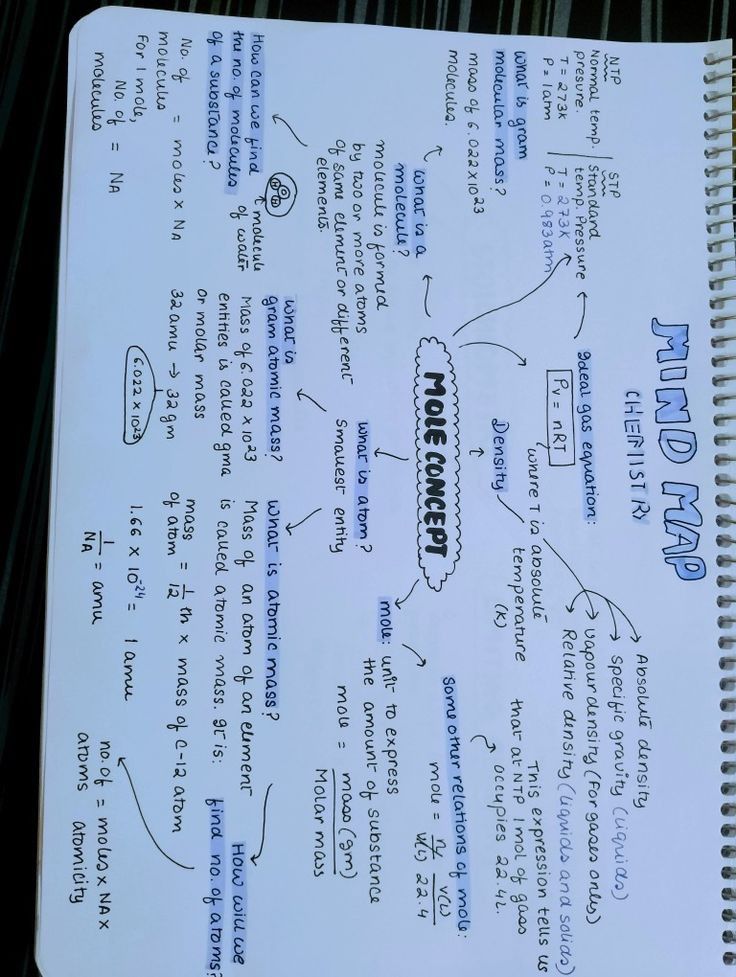 MIND MAP
CHEMISTRY
NTP
Normal temp.
presure.
T = 273K
P = 1atm
STP
Standard
temp. Pressure
T = 273K
P = 0.983atm
Ideal gas equation:
PV = nRT
where T is absolute
temperature
(K)
Density
Absolute density
Specific gravity (liquids)
vapour density (For gases only)
Relative density (liquids and solids)
What is gram
molecular mass?
mass of 6.022x10 23
molecules.
What is a
molecule?
molecule is formed
by two or more atoms
of same element or different
elements.
MOLE CONCEPT
some other relations of mole:
mole = V(L)
22.4
This expression tells us
that at NTP 1 mol of gas
occupies 22.4L.
mole: unit to express
the amount of substance
mole = mass (gm)
Molar mass
What is atom?
Smallest entity
How can we find
the no. of molecules
of a substance?
No. of = moles x NA
molecules
For 1 mole,
No. of = NA
molecules
O
H H
molecule
of water
What is
gram atomic mass?
Mass of 6.022 x 10 23
entities is called gma
or molar mass
32 amu → 32 gm
6.022 x 10 23
What is atomic mass?
Mass of an atom of an element
is called atomic mass. It is:
mass = 1 th x mass of C-12 atom
of atom 12
1.66 x 10 -24 = 1 amu
1 = amu
NA
How will we
find no. of atoms?
no. of = moles x NA x
atoms atomicity